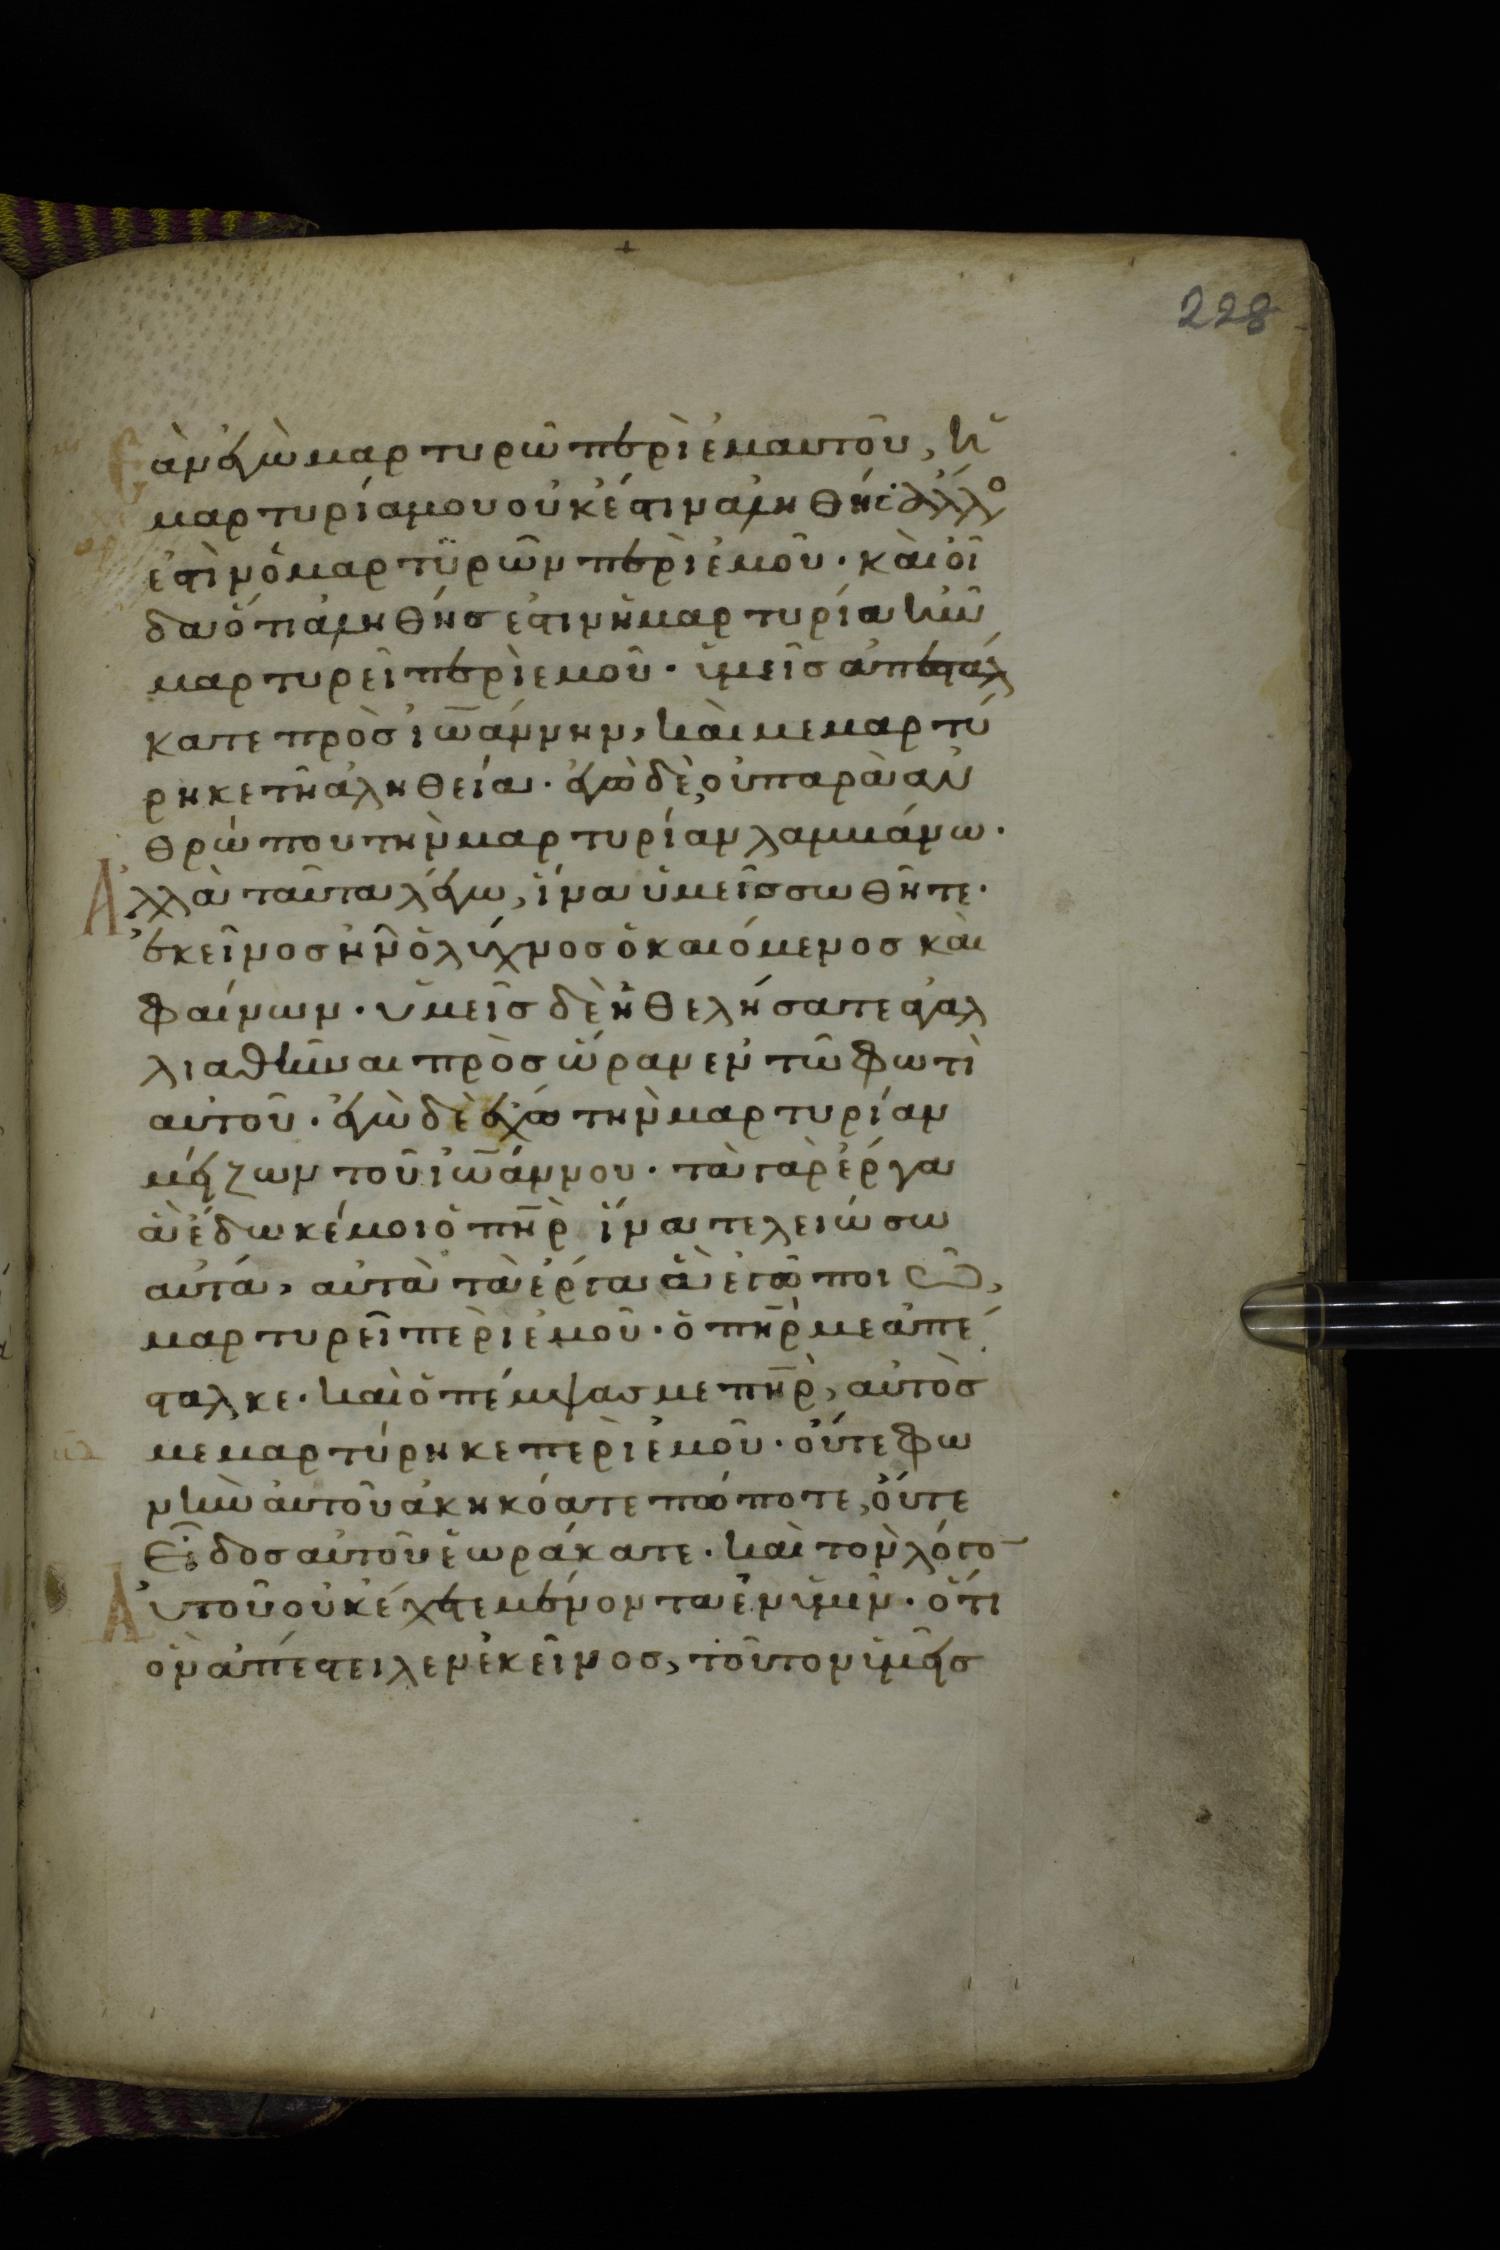 228
Ἐὰν ἐγὼ μαρτυρῶ περὶ ἐμαυτοῦ, ἡ
μαρτυρία μου οὐκ ἔστιν ἀληθής· ἄλλο
ἐστὶν ὁ μαρτυρῶν περὶ ἐμοῦ· καὶ οἶ
δα ὅτι ἀληθής ἐστιν ἡ μαρτυρία ἣν
μαρτυρεῖ περὶ ἐμοῦ· ὑμεῖς ἀπεστάλ
κατε πρὸς ἰωάννην, καὶ μεμαρτύ
ρηκε τῆ ἀληθεία· ἐγὼ δὲ οὐ παρὰ ἀν
θρώπου τὴν μαρτυρίαν λαμβάνω·
Ἀλλὰ ταῦτα λέγω, ἵνα ὑμεῖς σωθῆτε·
ἐκεῖνος ἦν ὁ λύχνος ὁ καιόμενος καὶ
φαίνων· ὑμεῖς δὲ ἠθελήσατε ἀγαλ
λιαθῆναι πρὸς ὥραν ἐν τῶ φωτὶ
αὐτοῦ· ἐγὼ δὲ ἔχω τὴν μαρτυρίαν
μείζων τοῦ ἰωάννου· τὰ γὰρ ἔργα
ἃ ἔδωκέ μοι ὁ πηρ ἵνα τελειώσω
αὐτά, αὐτὰ τὰ ἔργα ἃ ἐγὼ ποιῶ,
μαρτυρεῖ περὶ ἐμοῦ· ὁ πηρ με ἀπέ
σταλκε· καὶ ὁ πέμψας με πηρ, αὐτὸς
μεμαρτύρηκε περὶ ἐμοῦ· οὔτε φω
νὴν αὐτοῦ ἀκηκόατε πώποτε, οὔτε
εἶδος αὐτοῦ ἑωράκατε· καὶ τὸν λόγο̄
Αὐτοῦ οὐκ ἔχετε μένοντα ἐν ὑμῖν· ὅτι
ὃν ἀπέστειλεν ἐκεῖνος, τοῦτον ὑμεῖς